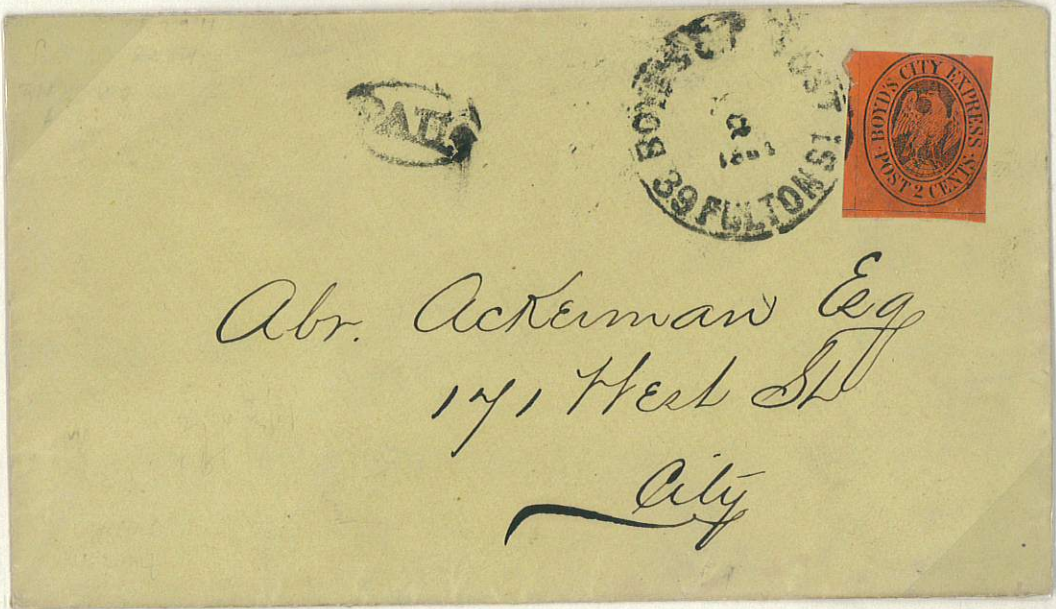 PAID
BOYD'S CITY POST
39 FULTON ST
BOYD'S CITY EXPRESS
POST 2 CENTS
Abr. Ackerman Esq
171 West St
City